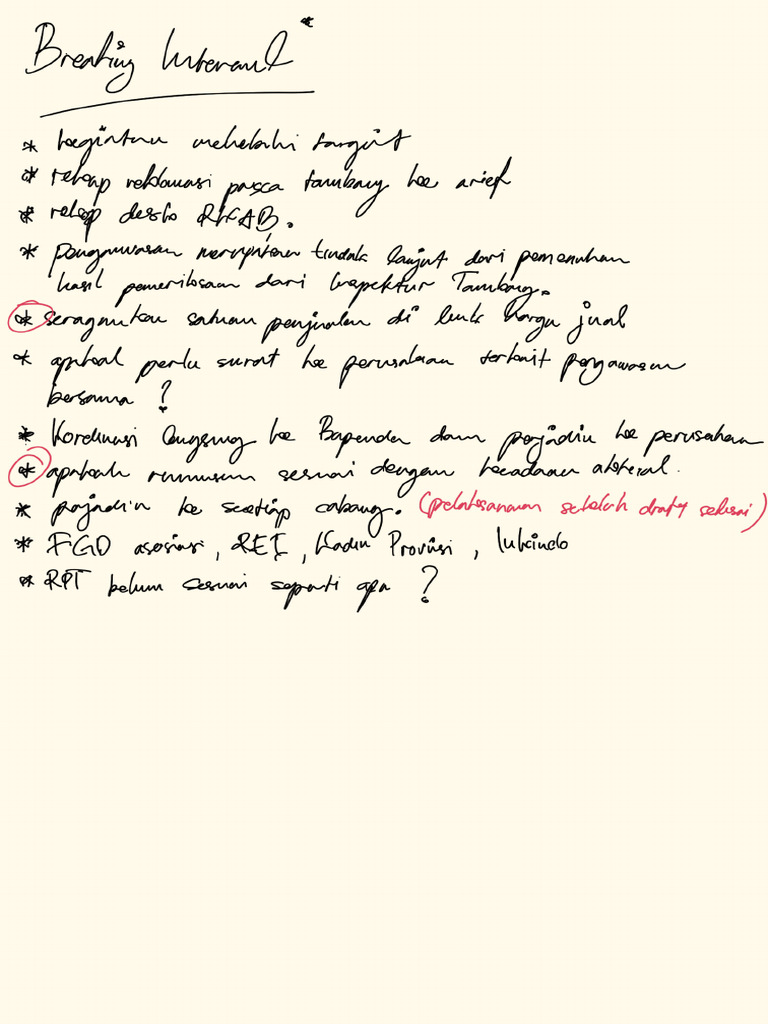 Breafing Internal *
* kegiatan melebihi target
* rekap reklamasi pasca tambang ke arief
* rekap desk RKAB.
* pengawasan merupakan tindak lanjut dari pemenuhan
hasil pemeriksaan dari Inspektur Tambang.
* seragamkan satuan penjualan di link harga jual
* apakah perlu surat ke perusahaan terkait pengawasan
bersama ?
* Kordinasi langsung ke Bapenda dan perjadin ke perusahaan
* apakah rumusan sesuai dengan keadaan aktual.
* perjadin ke setiap cabang. (pelaksanaan setelah draft selesai)
* FGD asosiasi, REI, Kadin Provinsi,
* RPT belum sesuai seperti apa ?